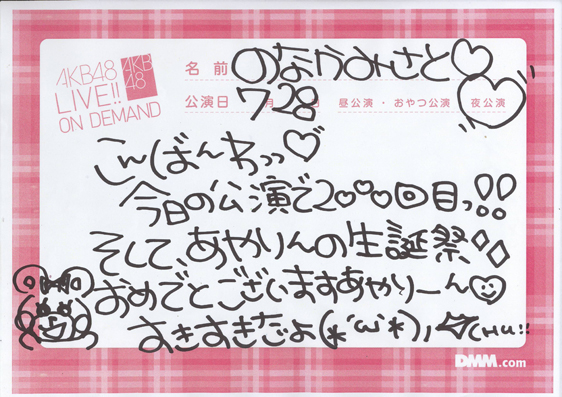 AKB48
LIVE!!
ON DEMAND
AKB
48
名前 のなかみさと♡
公演日 7月28日 昼公演・おやつ公演 夜公演
こんばんわっっ♡
今日の公演で2♡♡♡回目っ!!
そして、あやりんの生誕祭
おめでとございますあやりーん♡
すきすきだよ(*´ω`*)、CHU!!
DMM.com